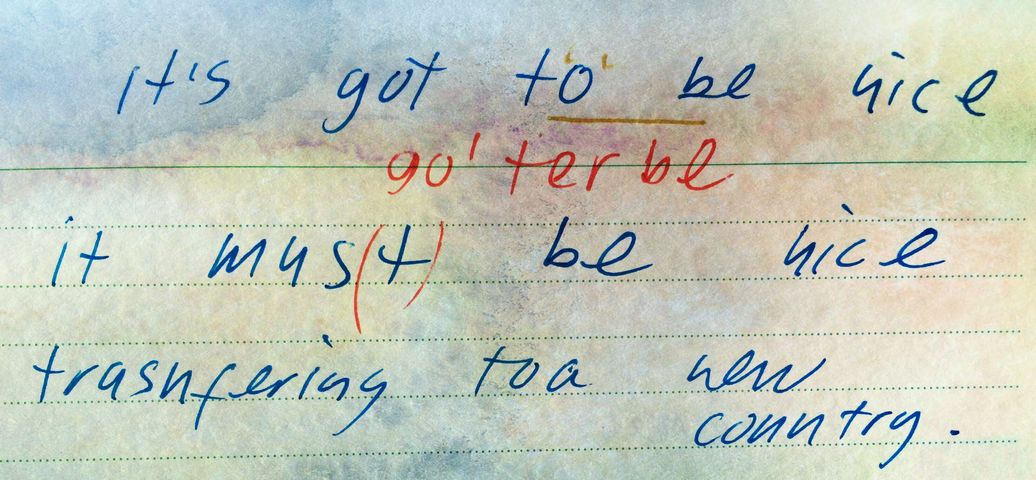 it's got to be nice
go' ter be
it mus(t) be nice
trasnfering toa new
country.